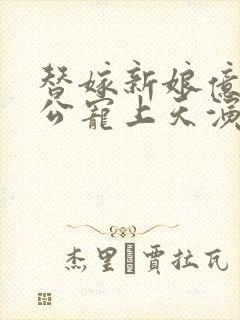 替嫁新娘億
公寵上天演
杰里 賈拉瓦